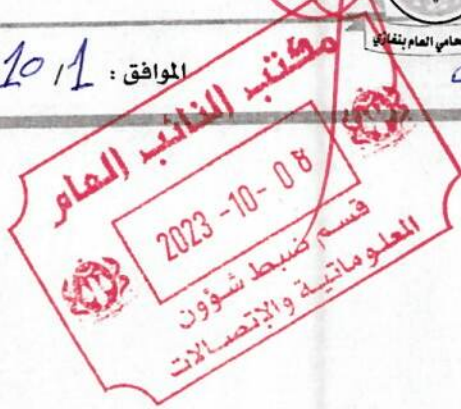 المحامي العام بنغازي
الموافق : 10/1
مكتب النائب العام
2023 -10- 08
قسم ضبط شؤون
المعلوماتية والإتصالات